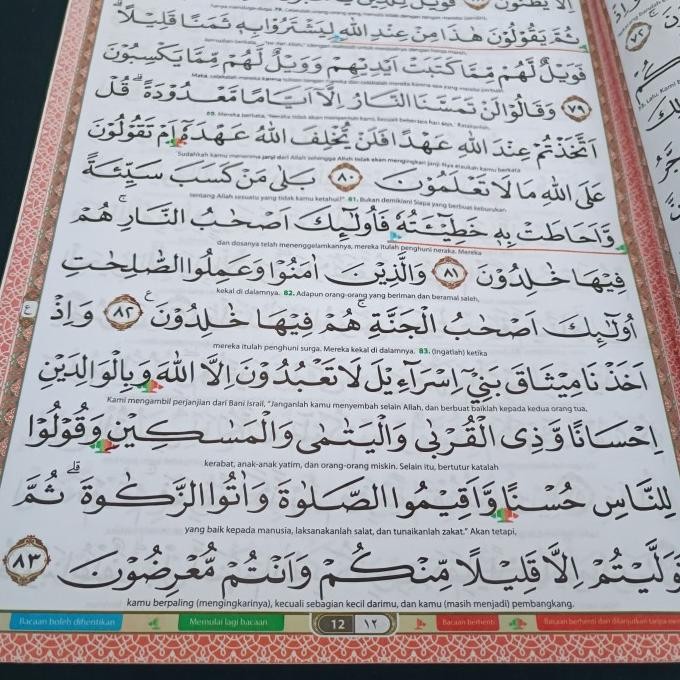 ثُمَّ يَقُوْلُوْنَ هٰذَا مِنْ عِنْدِ اللّٰهِ لِيَشْتَرُوْا بِهٖ ثَمَنًا قَلِيْلًاۗ
فَوَيْلٌ لَّهُمْ مِّمَّا كَتَبَتْ اَيْدِيْهِمْ وَوَيْلٌ لَّهُمْ مِّمَّا يَكْسِبُوْنَ
٧٩ وَقَالُوْا لَنْ تَمَسَّنَا النَّارُ اِلَّآ اَيَّامًا مَّعْدُوْدَةًۗ قُلْ
اَتَّخَذْتُمْ عِنْدَ اللّٰهِ عَهْدًا فَلَنْ يُّخْلِفَ اللّٰهُ عَهْدَهٗٓ اَمْ تَقُوْلُوْنَ
عَلَى اللّٰهِ مَا لَا تَعْلَمُوْنَ ٨٠ بَلٰى مَنْ كَسَبَ سَيِّئَةً
tentang Allah sesuatu yang tidak kamu ketahui?" 81. Bukan demikian! Siapa yang berbuat keburukan
وَّاَحَاطَتْ بِهٖ خَطِيْۤـَٔتُهٗ فَاُولٰۤىِٕكَ اَصْحٰبُ النَّارِۚ هُمْ
dan dosanya telah menenggelamkannya, mereka itulah penghuni neraka. Mereka
فِيْهَا خٰلِدُوْنَ ٨١ وَالَّذِيْنَ اٰمَنُوْا وَعَمِلُوا الصّٰلِحٰتِ
kekal di dalamnya. 82. Adapun orang-orang yang beriman dan beramal saleh,
اُولٰۤىِٕكَ اَصْحٰبُ الْجَنَّةِۚ هُمْ فِيْهَا خٰلِدُوْنَ ٨٢ وَاِذْ
mereka itulah penghuni surga. Mereka kekal di dalamnya. 83. (Ingatlah) ketika
اَخَذْنَا مِيْثَاقَ بَنِيْٓ اِسْرَاۤءِيْلَ لَا تَعْبُدُوْنَ اِلَّا اللّٰهَ وَبِالْوَالِدَيْنِ
Kami mengambil perjanjian dari Bani Israil, "Janganlah kamu menyembah selain Allah, dan berbuat baiklah kepada kedua orang tua,
اِحْسَانًا وَّذِى الْقُرْبٰى وَالْيَتٰمٰى وَالْمَسٰكِيْنِ وَقُوْلُوْا
kerabat, anak-anak yatim, dan orang-orang miskin. Selain itu, bertutur katalah
لِلنَّاسِ حُسْنًا وَّاَقِيْمُوا الصَّلٰوةَ وَاٰتُوا الزَّكٰوةَۗ ثُمَّ
yang baik kepada manusia, laksanakanlah salat, dan tunaikanlah zakat." Akan tetapi,
تَوَلَّيْتُمْ اِلَّا قَلِيْلًا مِّنْكُمْ وَاَنْتُمْ مُّعْرِضُوْنَ ٨٣
kamu berpaling (mengingkarinya), kecuali sebagian kecil darimu, dan kamu (masih menjadi) pembangkang.
Bacaan boleh dihentikan Memulai lagi bacaan 12 ١٢ Bacaan berhenti Bacaan berhenti dan dilanjutkan tanpa